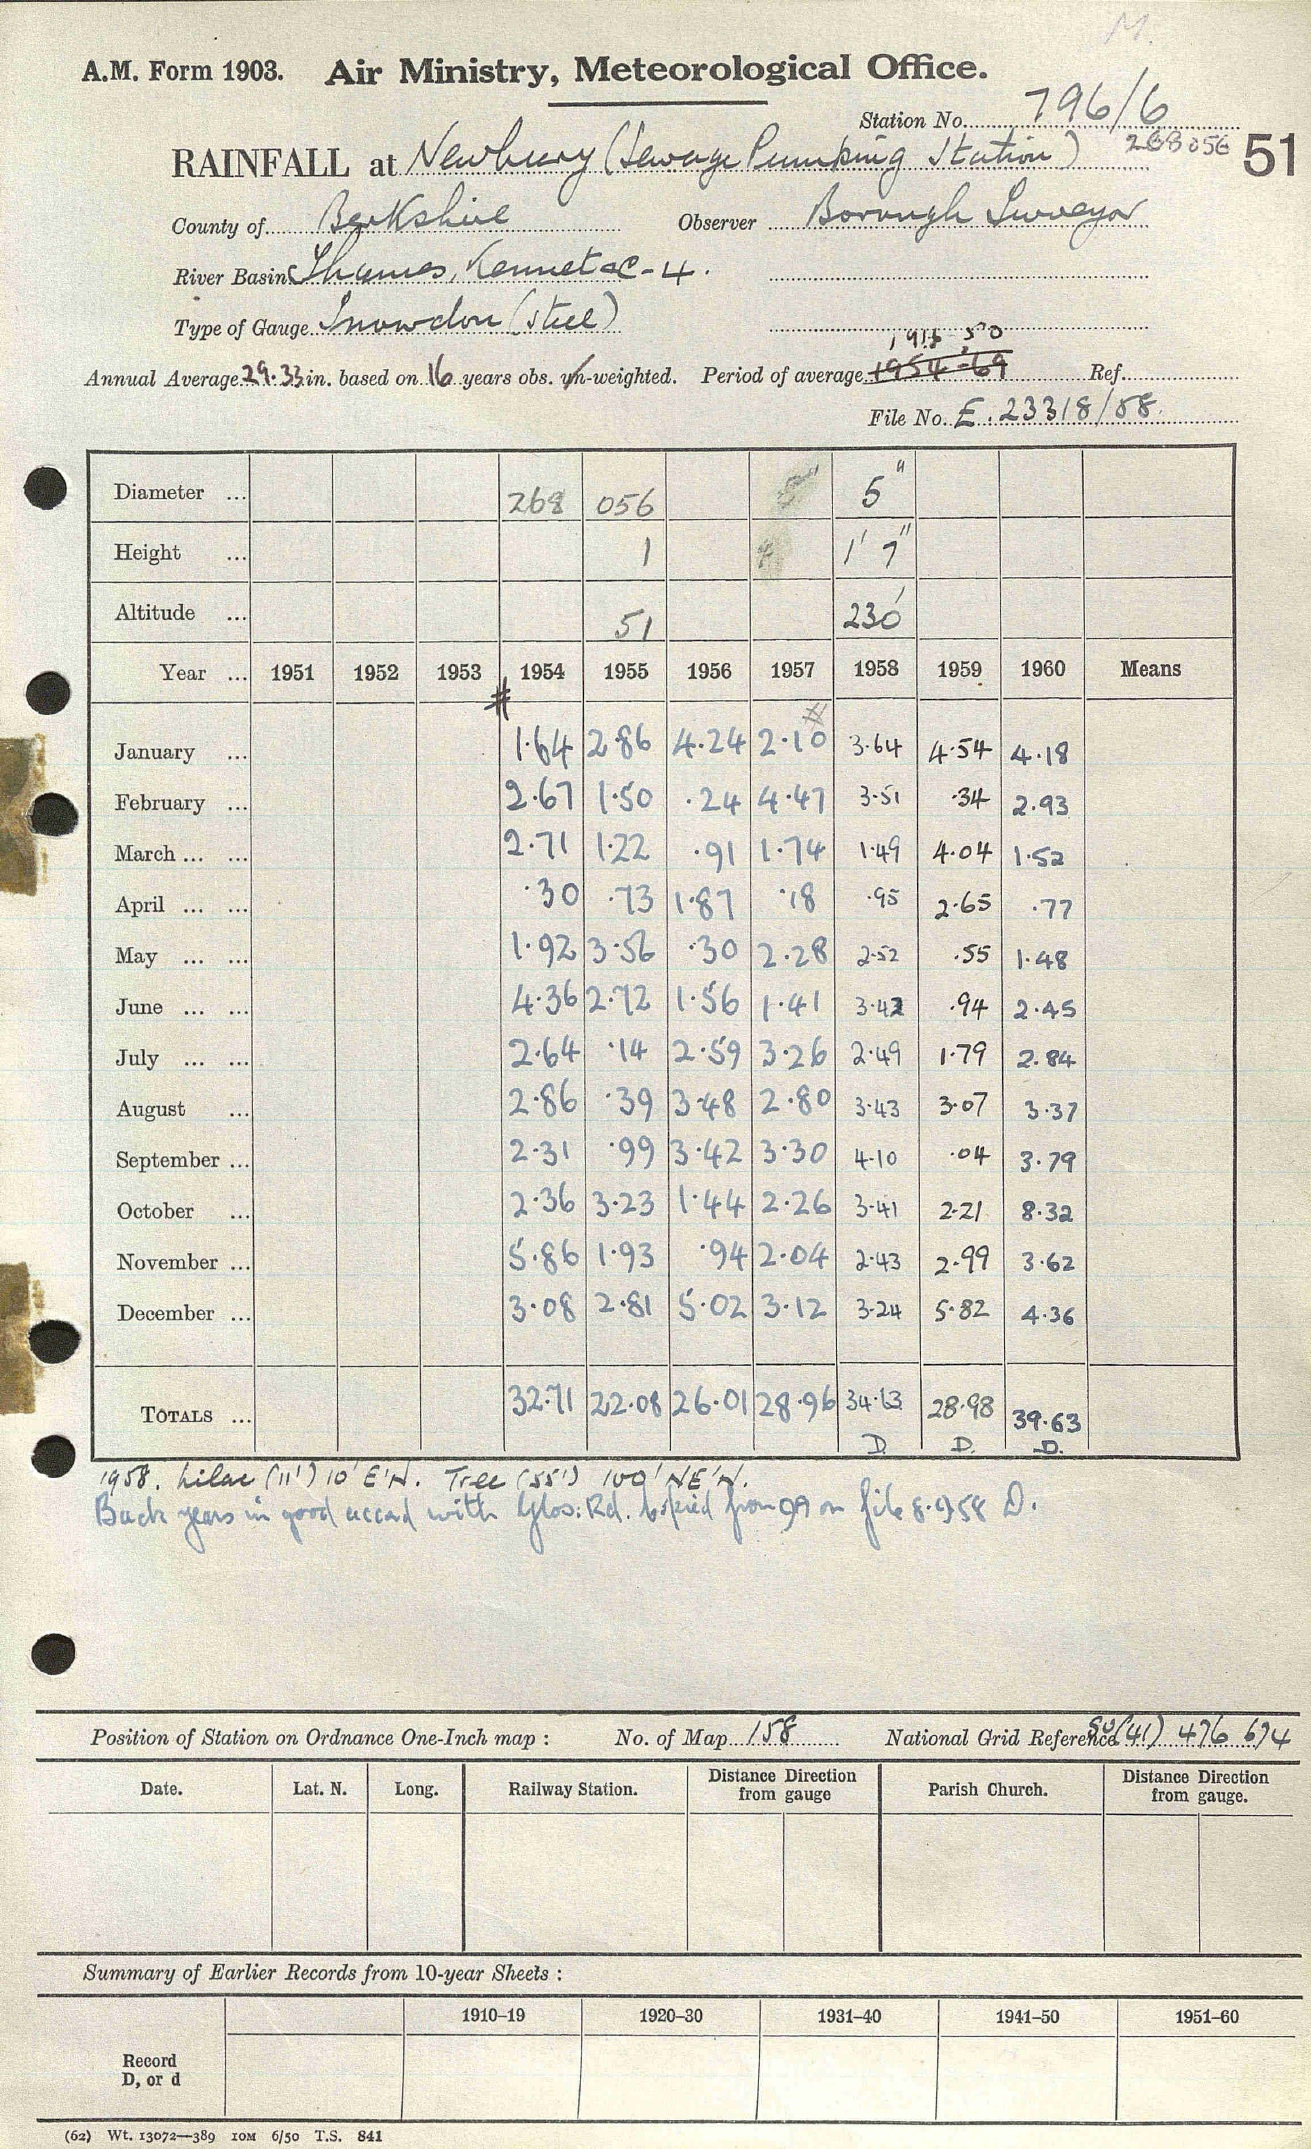 M.
A.M. Form 1903. Air Ministry, Meteorological Office.
Station No. 796/6
268056 51
RAINFALL at Newbury (Sewage Pumping Station)
County of Berkshire Observer Borough Surveyor
River Basin Thames, Kennet C-4.
Type of Gauge Snowdon (Steel)
1916-50
Annual Average 29.33 in. based on 16 years obs. un-weighted. Period of average 1954-69 Ref.
File No. E.23318/58
Diameter ... 268 056 5" 5"
Height ... 1 1' 7"
Altitude ... 51 230'
Year ... 1951 1952 1953 1954 1955 1956 1957 1958 1959 1960 Means
# #
January ... 1.64 2.86 4.24 2.10 3.64 4.54 4.18
February ... 2.67 1.50 .24 4.47 3.51 .34 2.93
March ... ... 2.71 1.22 .91 1.74 1.49 4.04 1.52
April ... ... .30 .73 1.87 .18 .95 2.65 .77
May ... ... 1.92 3.56 .30 2.28 2.52 .55 1.48
June ... ... 4.36 2.72 1.56 1.41 3.42 .94 2.45
July ... ... 2.64 .14 2.59 3.26 2.49 1.79 2.84
August ... 2.86 .39 3.48 2.80 3.43 3.07 3.37
September ... 2.31 .99 3.42 3.30 4.10 .04 3.79
October ... 2.36 3.23 1.44 2.26 3.41 2.21 8.32
November ... 5.86 1.93 .94 2.04 2.43 2.99 3.62
December ... 3.08 2.81 5.02 3.12 3.24 5.82 4.36
TOTALS ... 32.71 22.08 26.01 28.96 34.63 28.98 39.63
D. D. D.
1958. Lilac (11') 10' E'N. Tree (55') 100' NE'N.
Back years in good accord with Glos: Rd. Copied from on file 8.9.58 D.
Position of Station on Ordnance One-Inch map : No. of Map 158 National Grid Reference SU(41) 476 674
Date. Lat. N. Long. Railway Station. Distance from gauge Direction Parish Church. Distance from gauge. Direction
Summary of Earlier Records from 10-year Sheets :
1910-19 1920-30 1931-40 1941-50 1951-60
Record
D, or d
(62) Wt. 13072—389 10M 6/50 T.S. 841